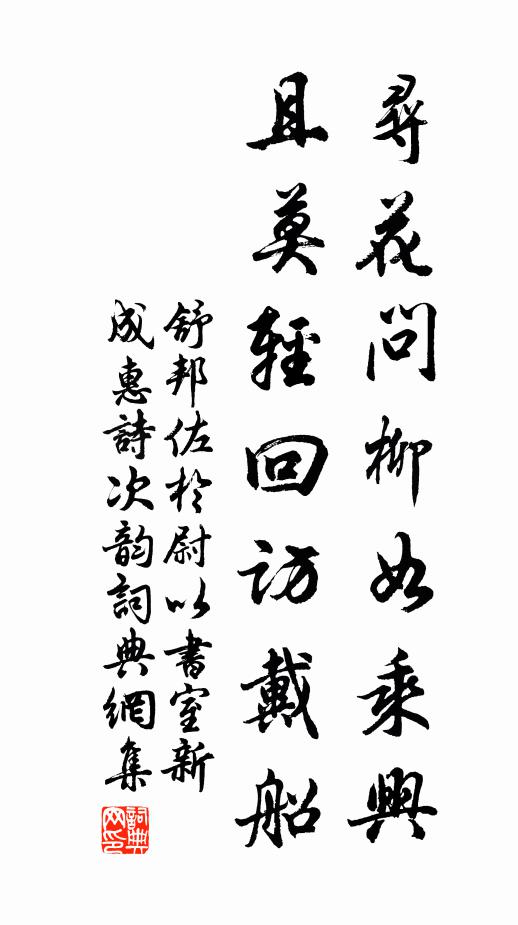 尋花問柳如乘興
且莫輕回訪戴船
舒邦佐於尉以書室新
成惠詩次韵詞典網集
詞典網印